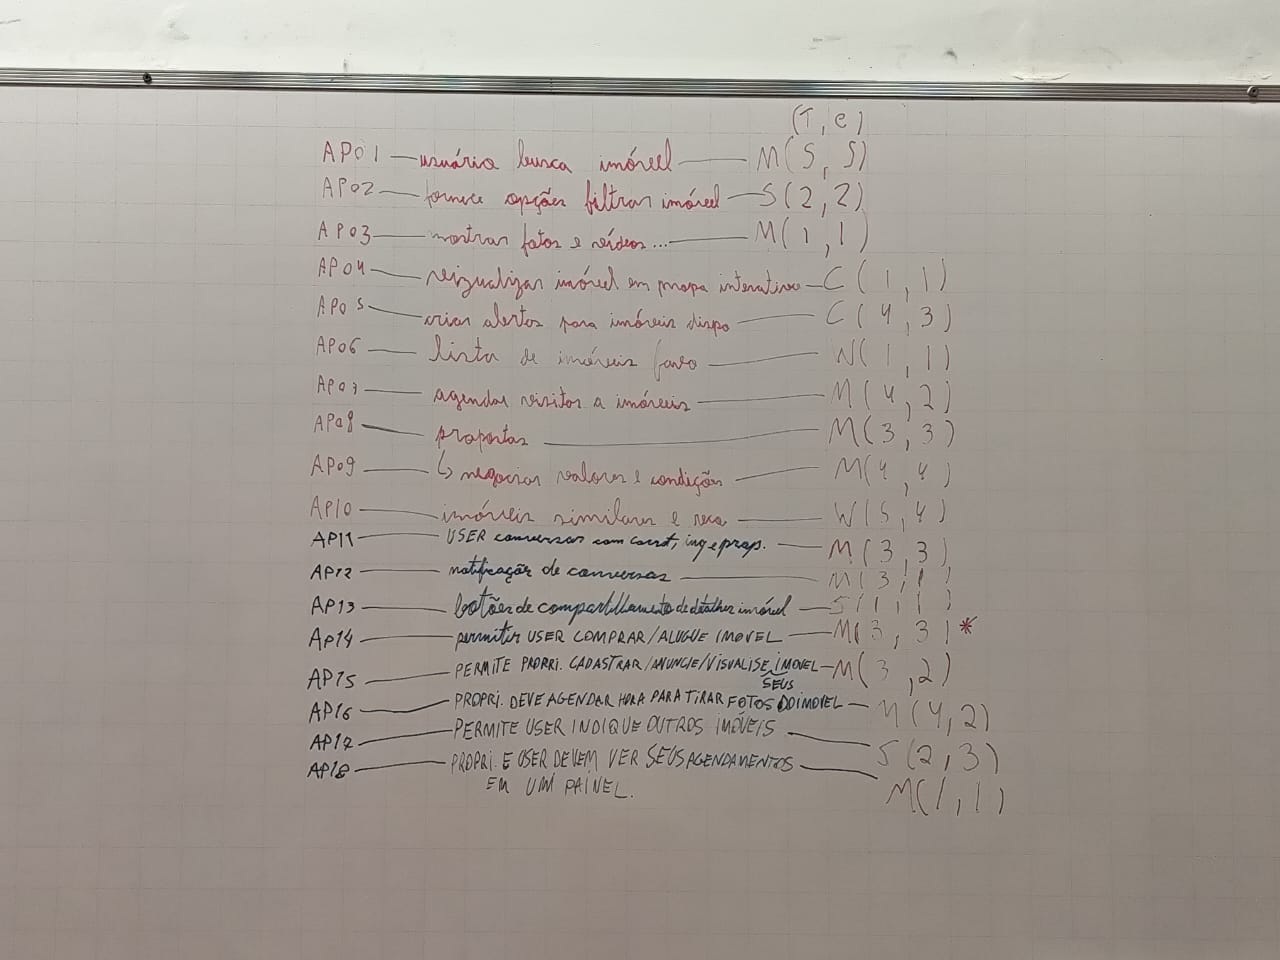 (T, e)
AP01 — usuário busca imóvel — M(5, 5)
AP02 — fornece opções filtrar imóvel — S(2, 2)
AP03 — mostrar fotos e vídeos... — M(1, 1)
AP04 — vizualizar imóvel em mapa interativo — C(1, 1)
AP05 — criar alertas para imóveis dispo — C(4, 3)
AP06 — lista de imóveis favo — W(1, 1)
AP07 — agendar visitas a imóveis — M(4, 2)
AP08 — propostas — M(3, 3)
AP09 — ↳ negociar valores e condições — M(4, 4)
AP10 — imóveis similares e reco — W(5, 4)
AP11 — USER conversar com corret, inq e prop. — M(3, 3)
AP12 — notificação de conversas — M(3, 1)
AP13 — botões de compartilhamento de detalhes imóvel — S(1, 1)
AP14 — permitir USER COMPRAR/ALUGUE IMOVEL — M(3, 3) *
AP15 — PERMITE PROPRI. CADASTRAR/ANUNCIE/VISUALISE IMOVEL — M(3, 2)
SEUS
AP16 — PROPRI. DEVE AGENDAR HORA PARA TIRAR FOTOS DO IMOVEL — M(4, 2)
AP17 — PERMITE USER INDIQUE OUTROS IMÓVEIS — S(2, 3)
AP18 — PROPRI. E USER DEVEM VER SEUS AGENDAMENTOS — M(1, 1)
EM UM PAINEL.